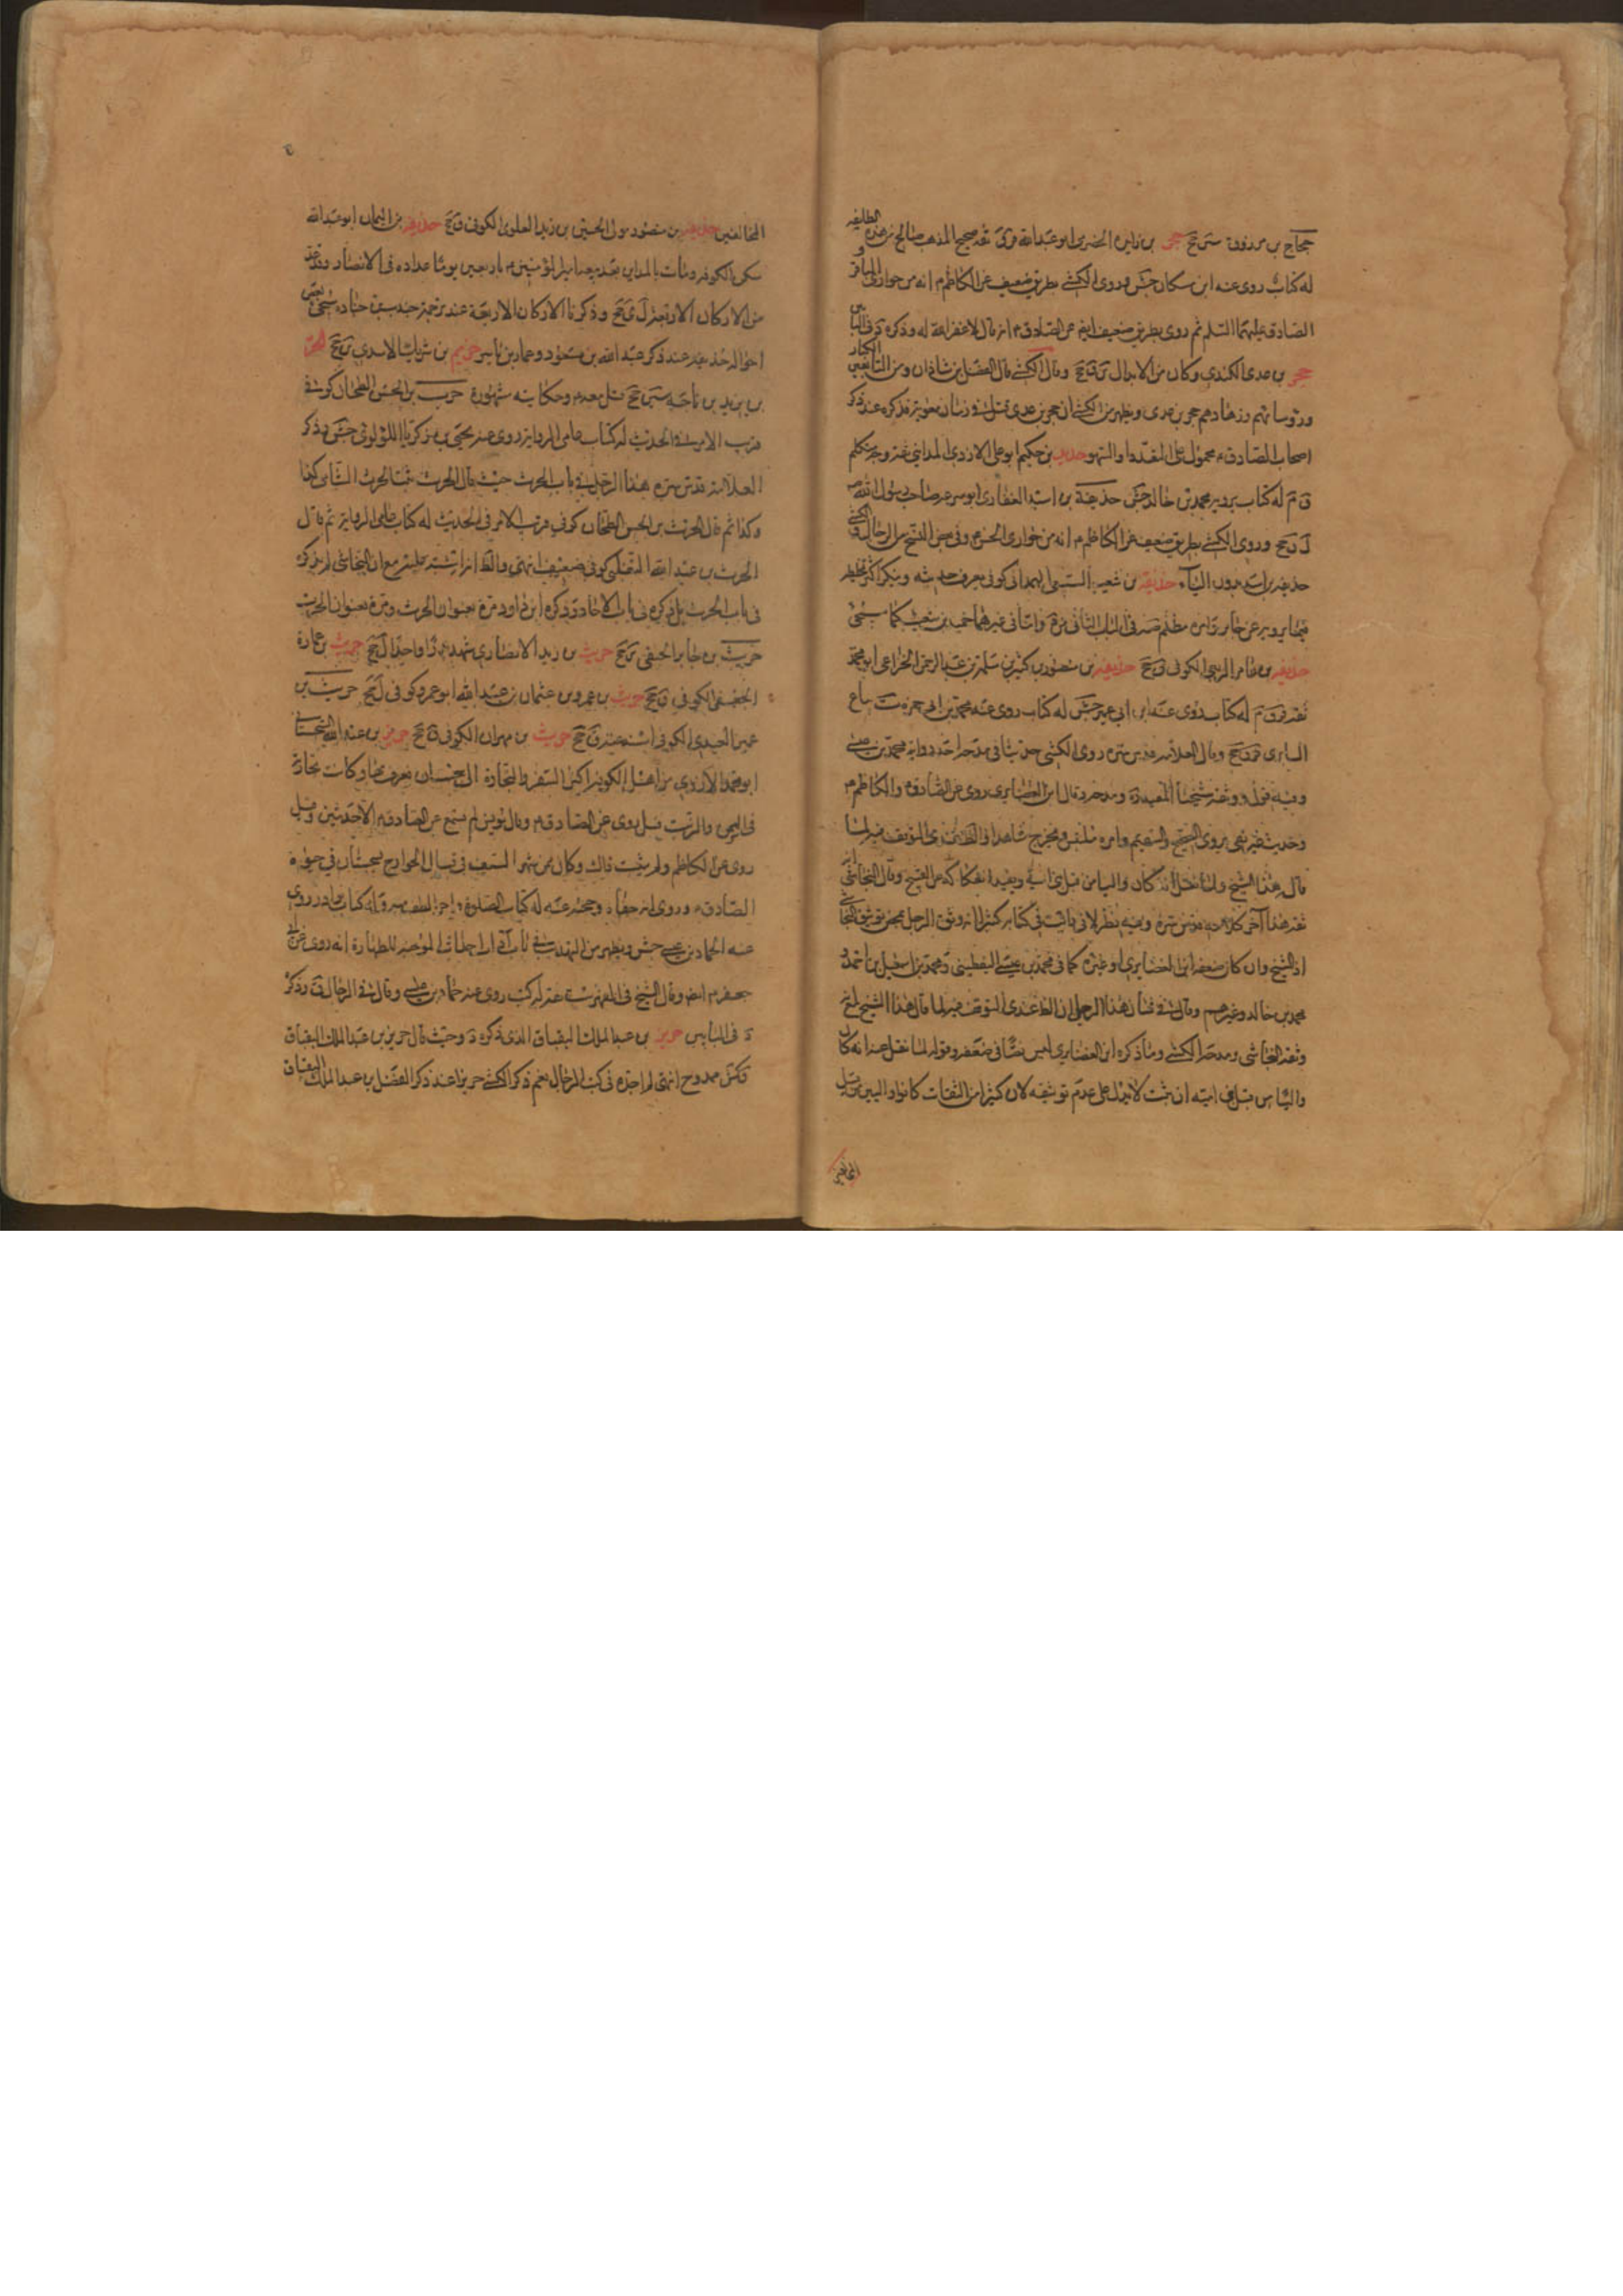 حجاج بن مرزوق سين جخ حجر بن زايدة الحضرمي ابو عبدالله قر ق ثقة صحيح المذهب صالح من هذه الطايفة
له كتاب روى عنه ابن مسكان جش وروى الكشي بطريق ضعيف عن الكاظم م انه من حواري الباقر و
الصادق عليهما السلم ثم روى بطريق ضعيف ايضا عن الصادق م انه قال لا غفر الله له وذكره د في البابين
حجر بن عدي الكندي وكان من الابدال ي ن جخ وقال الكشي قال الفضل بن شاذان ومن التابعين الكبار
ورؤسائهم وزهادهم حجر بن عدي ويظهر من الكشي ان حجر بن عدي قتل في زمان معوية فذكره عند ذكر
اصحاب الصادق م محمول على السهو حديد بن حكيم ابو علي الازدي المدايني ثقة وجه متكلم
ق م له كتاب يرويه محمد بن خالد جش حذيفة بن اسيد الغفاري ابو سريحة صاحب رسول الله ص
ل ن جخ وروى الكشي بطريق ضعيف عن الكاظم م انه من حواري الحسن م وفي بعض النسخ من الرجال والكشي
حذيفة بن اسد بدون الياء حذيفة بن شعيب السبيعي الهمداني كوفي يعرف حديثه وينكر اكثر تخليطه
فيما يرويه عن جابر وامره مظلم
حذيفة بن عامر الربعي الكوفي ق جخ حذيفة بن منصور بن كثير بن سلمة بن عبدالرحمن الخزاعي ابو محمد
ثقة قر ق م له كتاب روى عنه ابن ابي عمير جش له كتاب روى عنه محمد بن ابي حمزة ست بياع
السابري قر ق جخ وقال العلامة قدس سره روى الكشي حديثا في مدحه احد رواته محمد بن عيسى
وفيه قول ووثقه شيخنا المفيد ره ومدحه وقال ابن الغضايري روى عن الصادق م والكاظم م
وحديثه غير نقي يروي الصحيح والسقيم وامره ملتبس ويخرج شاهدا والظ عندي التوقف فيه لما
قال هذا الشيخ ولما نقل عنه انه كان واليا من قبل بني امية ويبعد انفكاكه عن القبيح وقال النجاشي انه
ثقة هذا آخر كلامه قدس سره وفيه نظر
اذ الشيخ وان كان ضعفه ابن الغضايري او غيره كما في محمد بن عيسى اليقطيني ومحمد بن اسمعيل بن احمد و
محمد بن خالد وغيرهم وقال في شأن هذا الرجل ان الظ عندي التوقف فيه لما قال هذا الشيخ مع
وثقه النجاشي ومدحه الكشي وما ذكره ابن الغضايري ليس نصا في ضعفه وقوله لما نقل عنه انه كان
واليا من قبل بني امية ان ثبت لا يدل على عدم توثيقه لان كثيرا من الثقات كانوا واليين من قبل
المخالفين
المخالفين حذيفة بن منصور مولى الحسين بن زيد العلوي الكوفي ق جخ حذيفة بن اليمان ابو عبدالله
سكن الكوفة ومات بالمداين بعد بيعة امير المؤمنين م باربعين يوما عداده في الانصار وقد عد
من الاركان الاربعة ل ي جخ وذكرنا الاركان الاربعة عند ترجمة جندب بن جنادة سيجئ بعض
احوال حذيفة عند ذكر عبد الله بن مسعود وعمار بن ياسر حذيم بن شريك الاسدي ين جخ الحر
بن يزيد بن ناجية سين جخ قتل معه م وحكايته مشهورة حرب بن الحسن الطحان كوفي
قريب الامر في الحديث له كتاب عامي الرواية روى عنه يحيى بن زكريا اللؤلؤي جش وذكر
العلامة قدس سره هذا الرجل في باب الحرث حيث قال الحرث ستة الحرث الشامي كذا
وكذا ثم قال الحرث بن الحسن الطحان كوفي قريب الامر في الحديث له كتاب عامي الرواية ثم قال
الحرث بن عبد الله التغلبي كوفي ضعيف انتهى والظ انه اشتبه عليه مع ان النجاشي لم يذكره
في باب الحرث بل ذكره في باب الاحاد وذكره ابن داود مرة بعنوان الحرث ومرة بعنوان الحرب
حريث بن جابر الحنفي ي جخ حريث بن زيد الانصاري شهد بدرا واحدا ل جخ حريث بن عمارة
الجعفي الكوفي ق جخ حريث بن عمرو بن عثمان بن عبد الله ابو عمرو كوفي ل جخ حريث بن
عمير العبدي الكوفي اسند عنه ق جخ حريث بن مهران الكوفي ق جخ حريز بن عبد الله السجستاني
ابو محمد الازدي من اهل الكوفة اكثر السفر والتجارة الى سجستان فعرف بها وكانت تجارته
في السمن والزيت قيل روى عن الصادق م وقال يونس لم يسمع عن الصادق م الا حديثين وقيل
روى عن الكاظم م ولم يثبت ذاك وكان ممن شهر السيف في قتال الخوارج بسجستان في حيوة
الصادق م وروى انه جفاه وحجبه عنه له كتاب الصلوة
عنه حماد بن عيسى جش
جعفر م ايضا وقال الشيخ في الفهرست ثقة له كتب روى عنه حماد بن عيسى وقال في الرجال ق وذكره
د في البابين حريز بن عبد الملك البقباق الذي ذكره د وحيث قال حريز بن عبد الملك البقباق
ق كش ممدوح انتهى لم اجده في كتب الرجال نعم ذكر الكشي حريزا عند ذكر الفضل بن عبد الملك البقباق